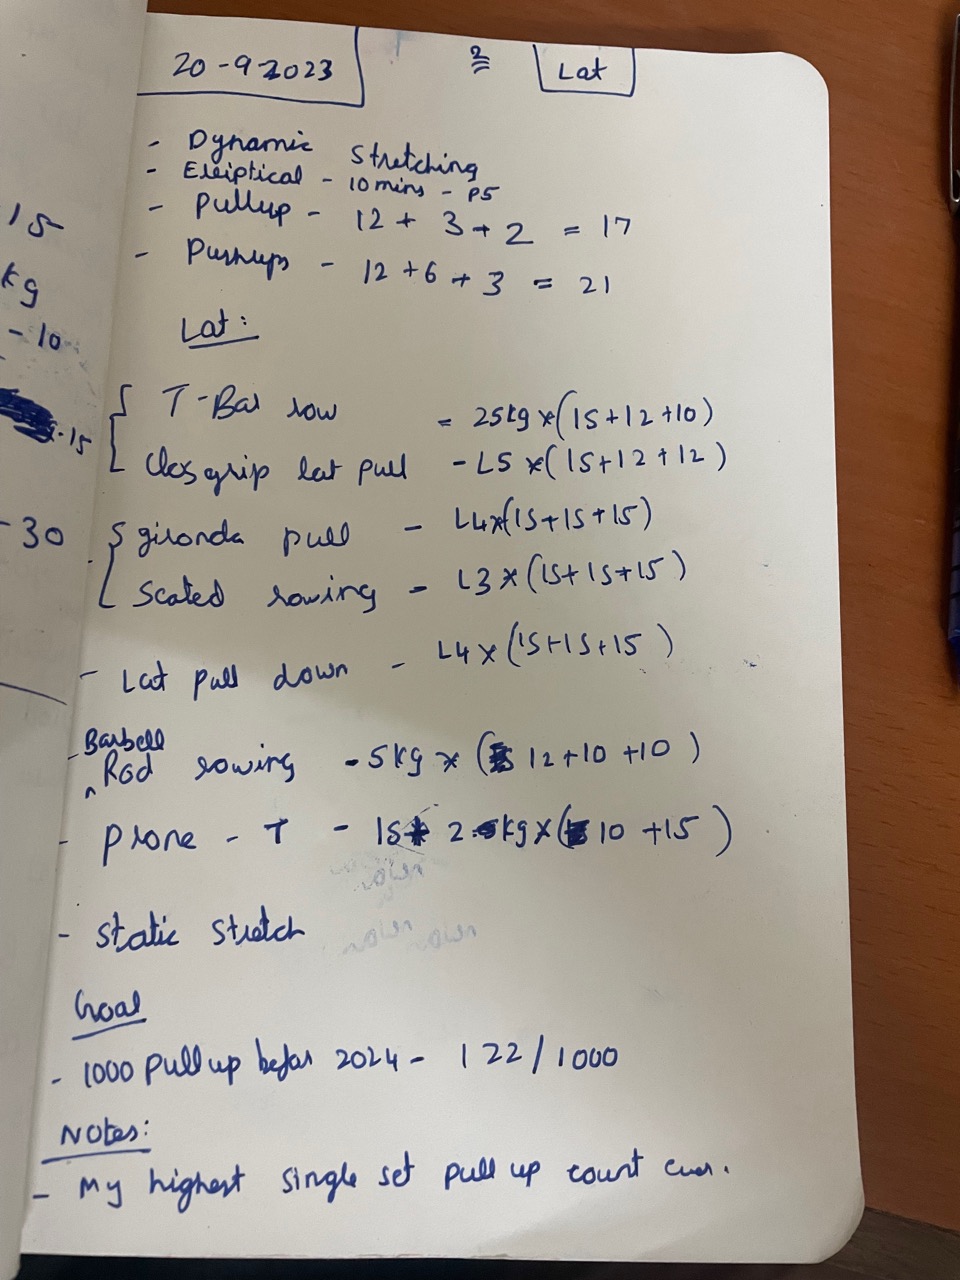 20-9-2023
2
Lat
- Dynamic Stretching
- Elliptical - 10mins - P5
- Pullup - 12 + 3 + 2 = 17
- Pushups - 12 + 6 + 3 = 21
Lat:
T-Bar row = 25kg x (15+12+10)
Clos grip lat pull - L5 x (15+12+12)
gironda pull - L4x(15+15+15)
Seated rowing - L3 x (15+15+15)
- Lat pull down - L4 x (15+15+15)
Barbell
- Rod rowing - 5kg x (12+10+10)
- Prone - T - 15 2 kg x (10 +15)
- Static Stretch
Goal
- 1000 Pull up befor 2024 - 122/1000
Notes:
- My highest single set pull up count ever.
15
kg
- 10
-15
- 30